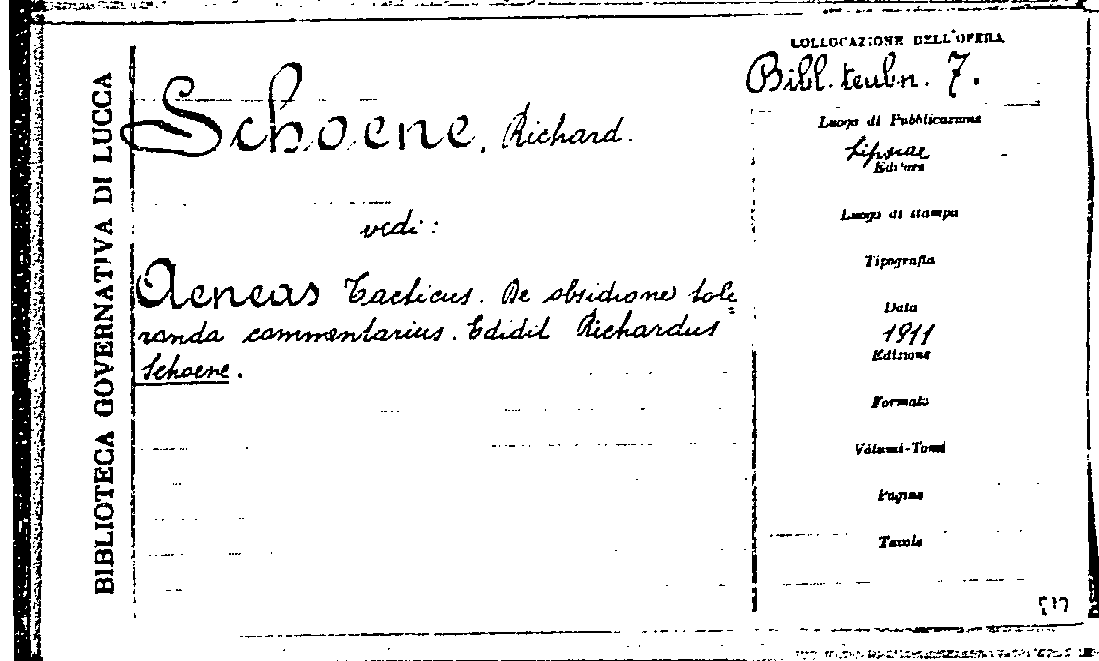 BIBLIOTECA GOVERNATIVA DI LUCCA
COLLOCAZIONE DELL'OPERA
Bibl. teubn. 7.
Schoene, Richard.
vedi:
Aeneas Tacticus. De obsidione tole=
randa commentarius. Edidit Richardus
Schoene.
Luogo di Pubblicazione
Lipsiae
Editore
Luogo di stampa
Tipografia
Data
1911
Edizione
Formato
Volumi-Tomi
Pagine
Tavole